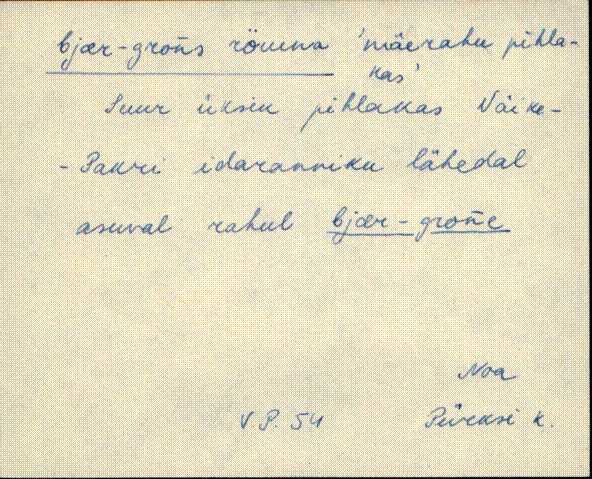 bjær-groñs römna 'mäerahu pihla-
kas'
Suur üksik pihlakas Väike-
-Pakri idaranniku lähedal
asuval rahul bjær-groñe
Noa
V P. 54 Pürksi k.